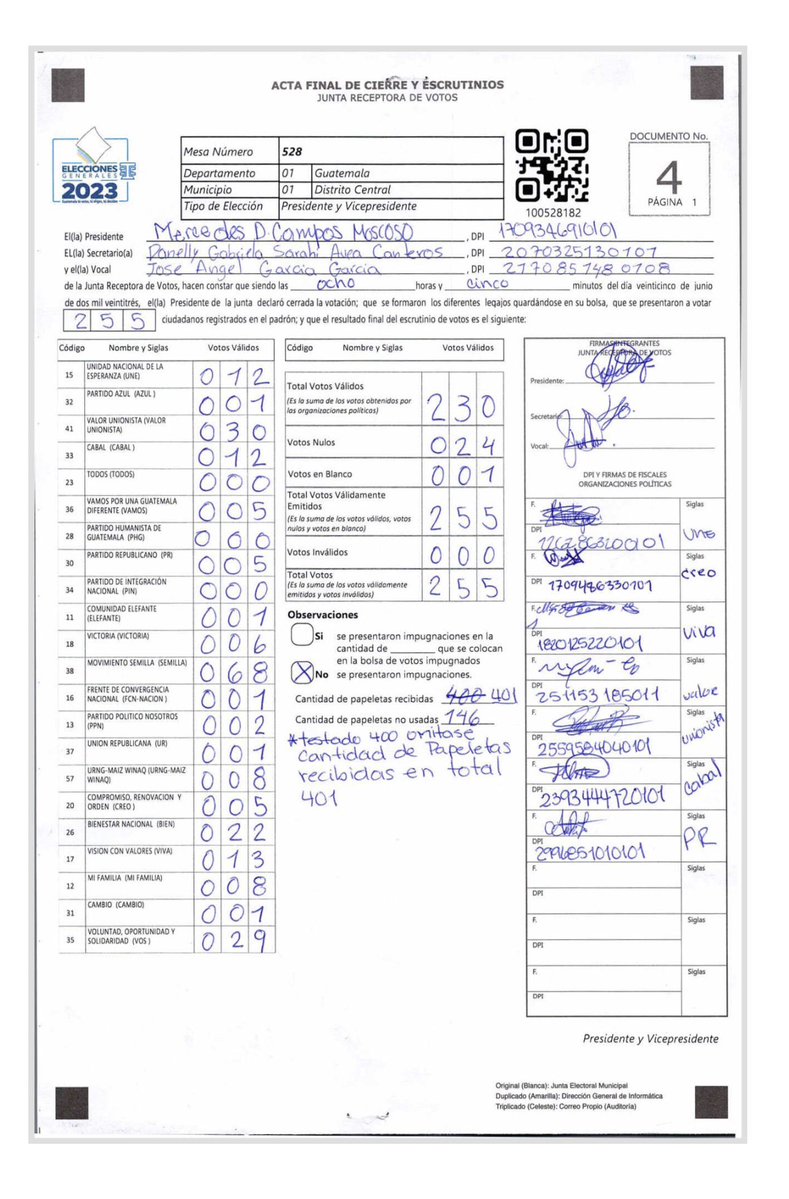 ACTA FINAL DE CIERRE Y ESCRUTINIOS
JUNTA RECEPTORA DE VOTOS
ELECCIONES
GENERALES
2023
Mesa Número 528
Departamento 01 Guatemala
Municipio 01 Distrito Central
Tipo de Elección Presidente y Vicepresidente
100528182
DOCUMENTO No.
4
PÁGINA 1
El(la) Presidente Mercedes D. Campos Moscoso, DPI 1709346910101
EL(la) Secretario(a) Gabriela Sarahi, DPI 2070325130101
y el(la) Vocal Jose Angel Garcia Garcia, DPI 217085748 0108
de la Junta Receptora de Votos, hacen constar que siendo las ocho horas y cinco minutos del día veinticinco de junio
de dos mil veintitrés, el(la) Presidente de la junta declaró cerrada la votación; que se formaron los diferentes legajos quardándose en su bolsa, que se presentaron a votar
255 ciudadanos registrados en el padrón; y que el resultado final del escrutinio de votos es el siguiente:
Código Nombre y Siglas Votos Válidos
15 UNIDAD NACIONAL DE LA ESPERANZA (UNE) 012
32 PARTIDO AZUL (AZUL ) 001
41 VALOR UNIONISTA (VALOR UNIONISTA) 030
33 CABAL (CABAL ) 012
23 TODOS (TODOS) 000
36 VAMOS POR UNA GUATEMALA DIFERENTE (VAMOS) 005
28 PARTIDO HUMANISTA DE GUATEMALA (PHG) 000
30 PARTIDO REPUBLICANO (PR) 005
34 PARTIDO DE INTEGRACIÓN NACIONAL (PIN) 000
11 COMUNIDAD ELEFANTE (ELEFANTE) 001
18 VICTORIA (VICTORIA) 006
38 MOVIMIENTO SEMILLA (SEMILLA) 068
16 FRENTE DE CONVERGENCIA NACIONAL (FCN-NACION ) 001
13 PARTIDO POLITICO NOSOTROS (PPN) 002
37 UNION REPUBLICANA (UR) 001
57 URNG-MAIZ WINAQ (URNG-MAIZ WINAQ) 008
20 COMPROMISO, RENOVACION Y ORDEN (CREO ) 005
26 BIENESTAR NACIONAL (BIEN) 022
17 VISION CON VALORES (VIVA) 013
12 MI FAMILIA (MI FAMILIA) 008
31 CAMBIO (CAMBIO) 001
35 VOLUNTAD, OPORTUNIDAD Y SOLIDARIDAD (VOS ) 029
Código Nombre y Siglas Votos Válidos
Total Votos Válidos 230
(Es la suma de los votos obtenidos por
las organizaciones políticas)
Votos Nulos 024
Votos en Blanco 001
Total Votos Válidamente
Emitidos 255
(Es la suma de los votos válidos, votos
nulos y votos en blanco)
Votos Inválidos 000
Total Votos 255
(Es la suma de los votos válidamente
emitidos y votos inválidos)
Observaciones
Si se presentaron impugnaciones en la
cantidad de ________ que se colocan
en la bolsa de votos impugnados
X No se presentaron impugnaciones.
Cantidad de papeletas recibidas 400 401
Cantidad de papeletas no usadas 146
*testado 400 omitase
cantidad de Papeletas
recibidas en total
401
FIRMAS INTEGRANTES
JUNTA RECEPTORA DE VOTOS
Presidente:
Secretario:
Vocal:
DPI Y FIRMAS DE FISCALES
ORGANIZACIONES POLÍTICAS
F. Siglas
DPI UNE
F. Siglas
DPI 1709486330101 creo
F. Siglas
DPI 1820125220101 viva
F. Siglas
DPI 251153185011 valor
F. Siglas
DPI 2559584040101 unionista
F. Siglas
DPI 2393444720101 Cabal
F. Siglas
DPI 2996851010101 PR
F. Siglas
DPI
F. Siglas
DPI
F. Siglas
DPI
Presidente y Vicepresidente
Original (Blanca): Junta Electoral Municipal
Duplicado (Amarilla): Dirección General de Informática
Triplicado (Celeste): Correo Propio (Auditoría)